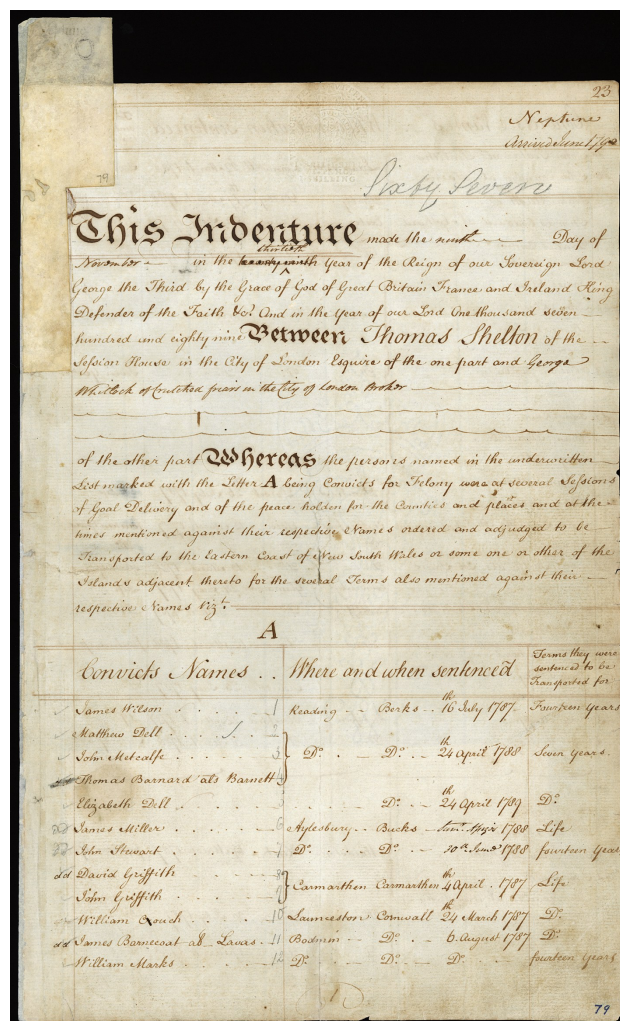 23
Neptune
Arrived June 1790
79
Sixty Seven
This Indenture made the ninth Day of
thirtieth
November in the twenty ninth Year of the Reign of our Sovereign Lord
George the Third by the Grace of God of Great Britain France and Ireland King
Defender of the Faith &c. And in the Year of our Lord One thousand seven
hundred and eighty nine Between Thomas Shelton of the
Session House in the City of London Esquire of the one part and George
Whitlock of Crutched friars in the City of London Broker
of the other part Whereas the persons named in the underwritten
List marked with the Letter A being Convicts for Felony were at several Sessions
of Goal Delivery and of the peace holden for the Counties and places and at the
times mentioned against their respective Names ordered and adjudged to be
Transported to the Eastern Coast of New South Wales or some one or other of the
Islands adjacent thereto for the several Terms also mentioned against their
respective Names Vizt.
A
Convicts Names . . Where and when sentenced Terms they were sentenced to be Transported for
James Wilson 1 Reading Berks 16th July 1787. Fourteen Years
Matthew Dell 2
John Metcalfe 3 Do. Do. 24th April 1788 Seven Years
Thomas Barnard als Barnett 4
Elizabeth Dell 5 Do. 24th April 1789 Do.
James Miller 6 Aylesbury Bucks 1788 Life
John Stewart 7 Do. Do. 1788 fourteen Years
dd David Griffith 8
Carmarthen Carmarthen 4 April 1787 Life
John Griffith 9
William Crouch 10 Launceston Cornwall 24th March 1787 Do.
dd James Barnecoat als Lavas 11 Bodmin Do. 6 August 1787 Do.
William Marks 12 Do. Do. Do. fourteen Years
79